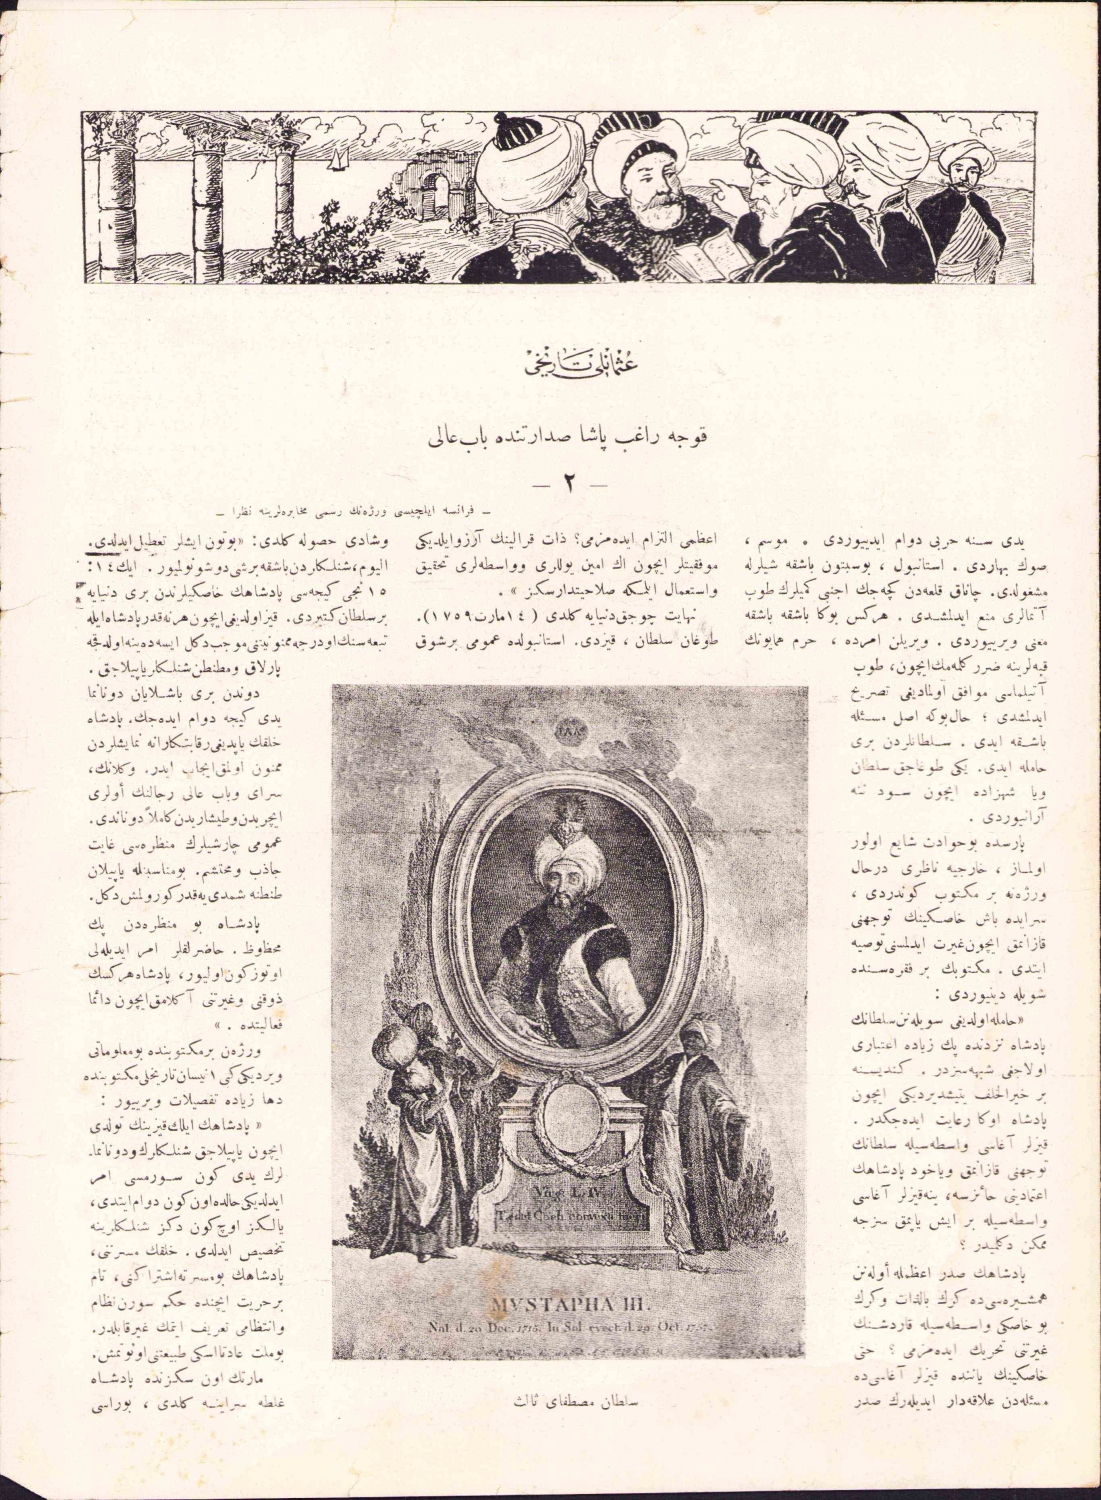 عثمانلی تاریخی
قوجه راغب پاشا صدارتنده باب عالی
— ۲ —
— فرانسه ایلچیسی ورژه‌نك رسمی مخابره‌لرینه نظراً —
یدی سنه حربی دوام ایدییوردی . موسم ،
صوك بهاردی . استانبول ، بوسبتون باشقه شیلرله
مشغولدی. چاناق قلعه‌دن کچه‌جك اجنبی کمیلرك طوپ
آتمالری منع ایدلمشدی . هرکس بوکا باشقه باشقه
معنی ویرییوردی . ویریلن امرده ، حرم همایونك
قبه‌لرینه ضرر کلمه‌مك ایچون، طوپ
آتیلماسی موافق اولمادیغی تصریح
ایدلمشدی ؛ حال‌بوکه اصل مسئله
باشقه ایدی . سلطانلردن بری
حامله ایدی. یکی طوغاجق سلطان
ویا شهزاده ایچون سود ننه
آرانیوردی .
پارسده بوحوادث شایع اولور
اولماز ، خارجیه ناظری درحال
ورژه‌نه بر مکتوب کوندردی ،
سرایده باش خاصکینك توجهنی
قازانمق ایچون غیرت ایدلمسنی توصیه
ایتدی . مکتوبك بر فقره‌سنده
شویله دینیوردی :
«حامله اولدیغی سویله‌نن سلطانك
پادشاه نزدنده پك زیاده اعتباری
اولاجغی شبهه‌سزدر . کندیسنه
بر خیرالخلف یتیشدیردیکی ایچون
پادشاه اوکا رعایت ایده‌جکدر .
قیزلر آغاسی واسطه‌سیله سلطانك
توجهنی قازانمق ویاخود پادشاهك
اعتمادینی حائزسه، ینه قیزلر آغاسی
واسطه‌سیله بر ایش یاپمق سزجه
ممکن دکلمیدر ؟
پادشاهك صدر اعظمله أوله‌نن
همشیره‌سی ده کرك بالذات وکرك
بو خاصکی واسطه‌سیله قاردشنك
غیرتنی تحریك ایده‌مزمی ؟ حتی
خاصکینك یاننده قیزلر آغاسی ده
مسئله‌دن علاقه‌دار ایدیله‌رك صدر
اعظمی التزام ایده‌مزمی؟ ذات قرالینك آرزو ایلدیکی
موفقیتلر ایچون اك امین یوللری وواسطه‌لری تحقیق
واستعمال ایلمکه صلاحیتدارسکز » .
نهایت چوجق دنیایه کلدی ( ١٤ مارت ١٧٥٩).
طوغان سلطان ، قیزدی. استانبولده عمومی برشوق
وشادی حصوله کلدی: «بوتون ایشلر تعطیل ایدلدی.
الیوم، شنلکلردن باشقه برشی دوشونولمیور . ایك ١٤:
١٥ نجی کیجه‌سی پادشاهك خاصکیلرندن بری دنیایه
برسلطان کتیردی. قیز اولدیغی ایچون هر نه قدر پادشاه ایله
تبعه‌سنك او درجه ممنونیتنی موجب دکل ایسه ده ینه اولدقجه
پارلاق ومطنطن شنلکلر یاپیلاجق.
دوندن بری باشلایان دونانما
یدی کیجه دوام ایده‌جك. پادشاه
خلقك یاپدیغی رقابتکارانه نمایشلردن
ممنون اولمق ایجاب ایدر. وکلانك،
سرای وباب عالی رجالنك أولری
ایچریدن وطیشاریدن کاملاً دوناندی.
عمومی چارشیلرك منظره‌سی غایت
جاذب ومحتشم. بومناسبتله یاپیلان
طنطنه شمدی‌یه قدر کورولمش دکل.
پادشاه بو منظره‌دن پك
محظوظ . حاضرلقلر امر ایدیله‌لی
اوتوز کون اولیور، پادشاه هرکسك
ذوقنی وغیرتنی آکلامق ایچون دائما
فعالیتده . »
ورژه‌ن بر مکتوبنده بومعلوماتی
ویردیکی کبی ١ نیسان تاریخلی مکتوبنده
دها زیاده تفصیلات ویرییور :
« پادشاهك ایلك قیزینك تولدی
ایچون یاپیلاجق شنلکلرك ودونانما-
لرك یدی کون سورمسی امر
ایدلدیکی حالده اون کون دوام ایتدی،
یالکز اوچ کون دکز شنلکلرینه
تخصیص ایدلدی . خلقك مسرتنی،
پادشاهك بومسرته اشتراکنی، تام
برحریت ایچنده حکم سورن نظام
وانتظامی تعریف ایتمك غیرقابلدر.
بوملت عادتا اسکی طبیعتنی اونوتمش.
مارتك اون سکزنده پادشاه
غلطه سراینه کلدی ، بوراسی
MVSTAPHA III.
Nat. d. 20. Dec. 1715. In Sol. evect. d. 29. Oct. 1757.
سلطان مصطفای ثالث